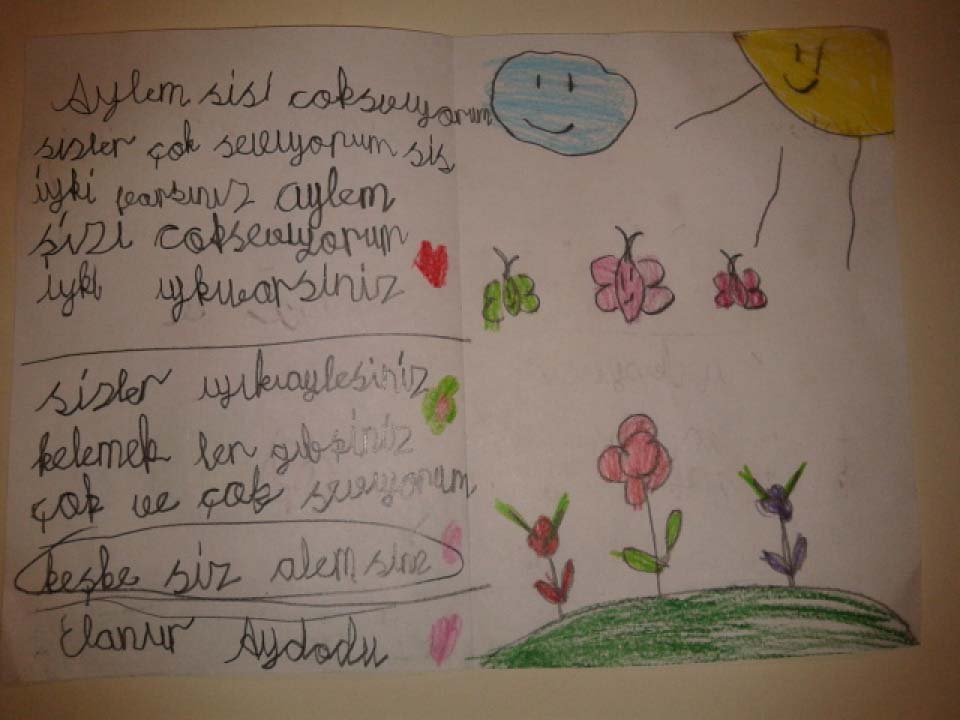 Aylem sisi coksevyorum
sisler çok seviyorum sis
iyki varsınız aylem
şizi cokseviyorum
iyki iykivarsiniz
sisler iyikiaylesiniz
kelemek ler gibsiniz
çok ve çok seviyorum
keşke siz alemsiniz
Elanur Aydodu